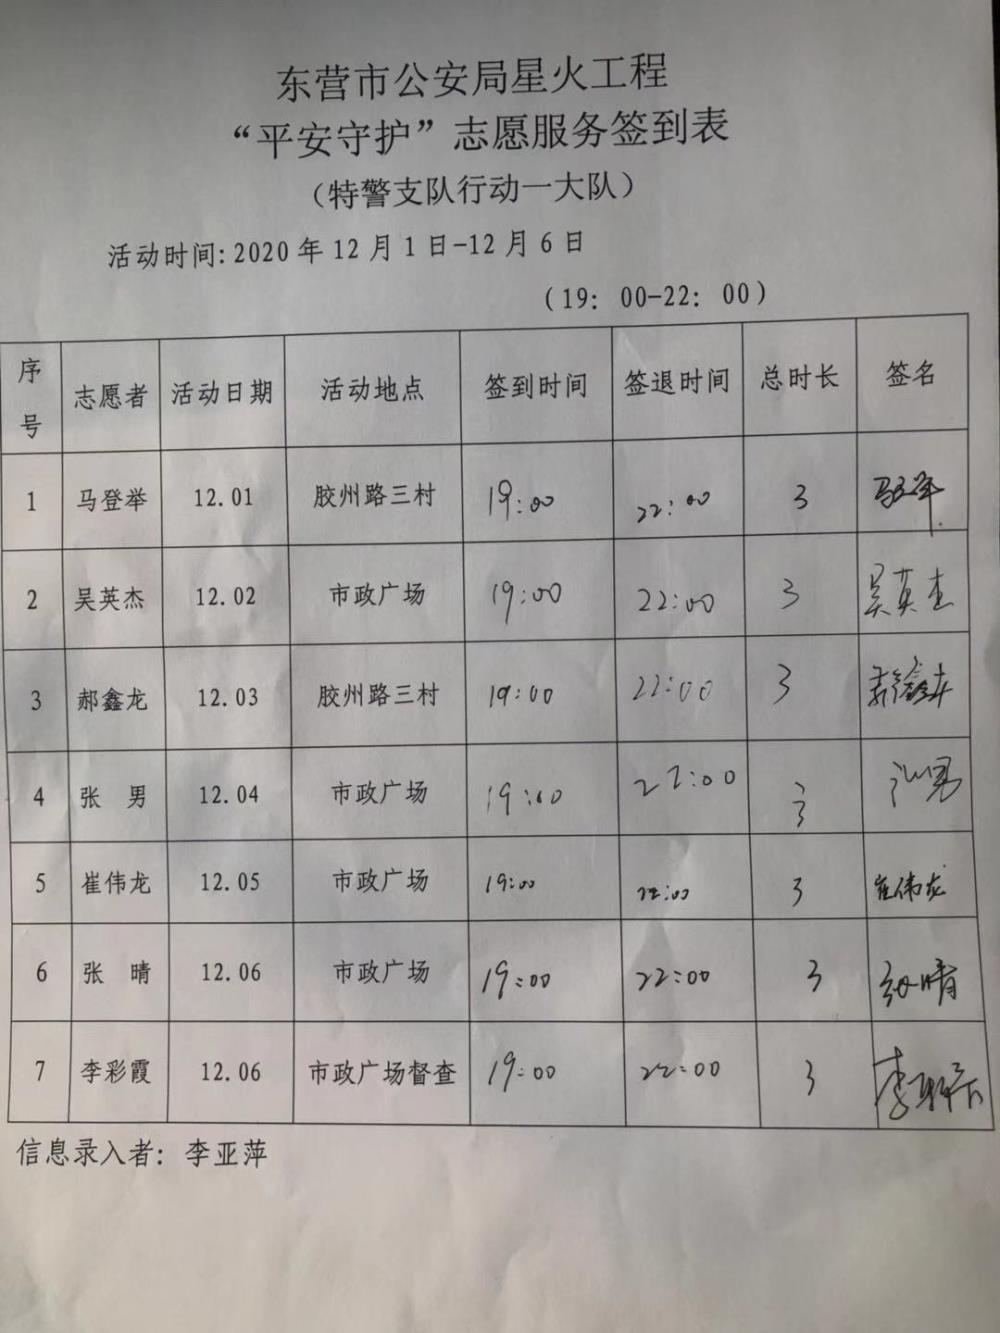 东营市公安局星火工程
“平安守护”志愿服务签到表
（特警支队行动一大队）
活动时间：2020 年 12 月 1 日-12 月 6 日
（19：00-22：00）
序号 志愿者 活动日期 活动地点 签到时间 签退时间 总时长 签名
1 马登举 12.01 胶州路三村 19:00 22:00 3
2 吴英杰 12.02 市政广场 19:00 22:00 3 吴英杰
3 郝鑫龙 12.03 胶州路三村 19:00 22:00 3
4 张 男 12.04 市政广场 19:00 22:00 3 张男
5 崔伟龙 12.05 市政广场 19:00 22:00 3 崔伟龙
6 张 晴 12.06 市政广场 19:00 22:00 3 张晴
7 李彩霞 12.06 市政广场督查 19:00 22:00 3
信息录入者：李亚萍